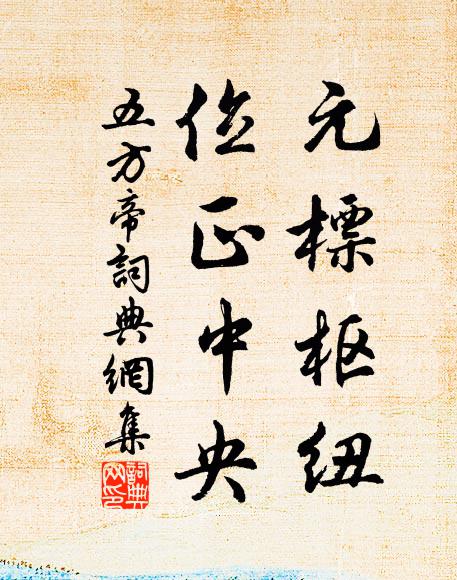 元標枢紐
位正中央
五方帝詞典網集
詞典
网印